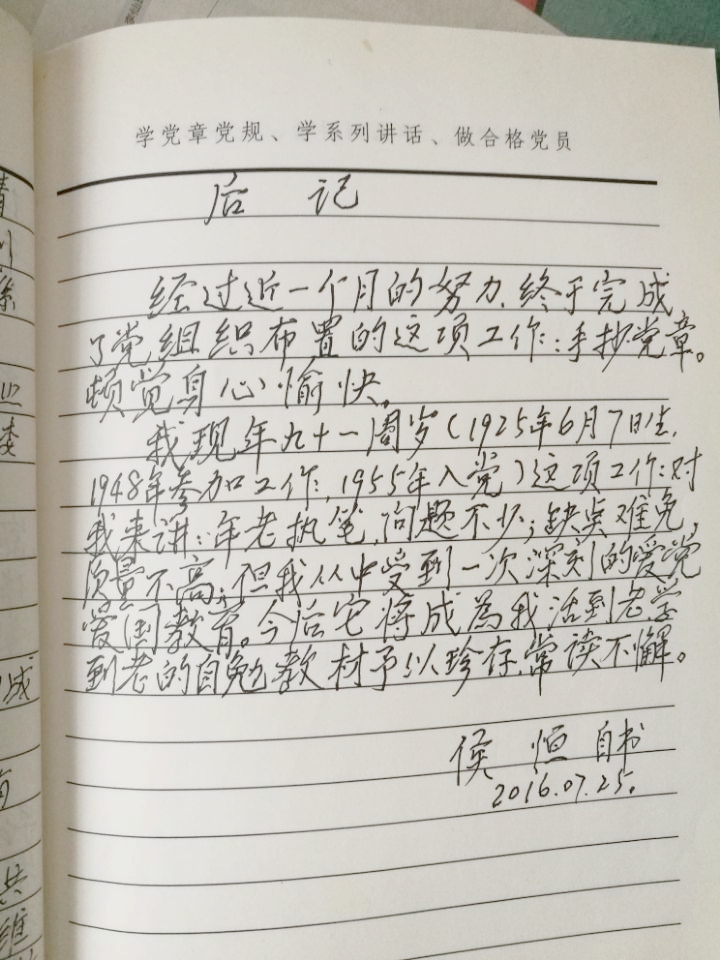 学党章党规、学系列讲话、做合格党员
后 记
经过近一个月的努力,终于完成
了党组织布置的这项工作:手抄党章。
顿觉身心愉快。
我现年九十一周岁(1925年6月7日生,
1948年参加工作,1955年入党)这项工作对
我来讲:年老执笔,问题不少;缺点难免,
质量不高;但我从中受到一次深刻的爱党
爱国教育。今后它将成為我活到老学
到老的自勉教材予以珍存,常读不懈。
侯 恒 自书
2016.07.25.